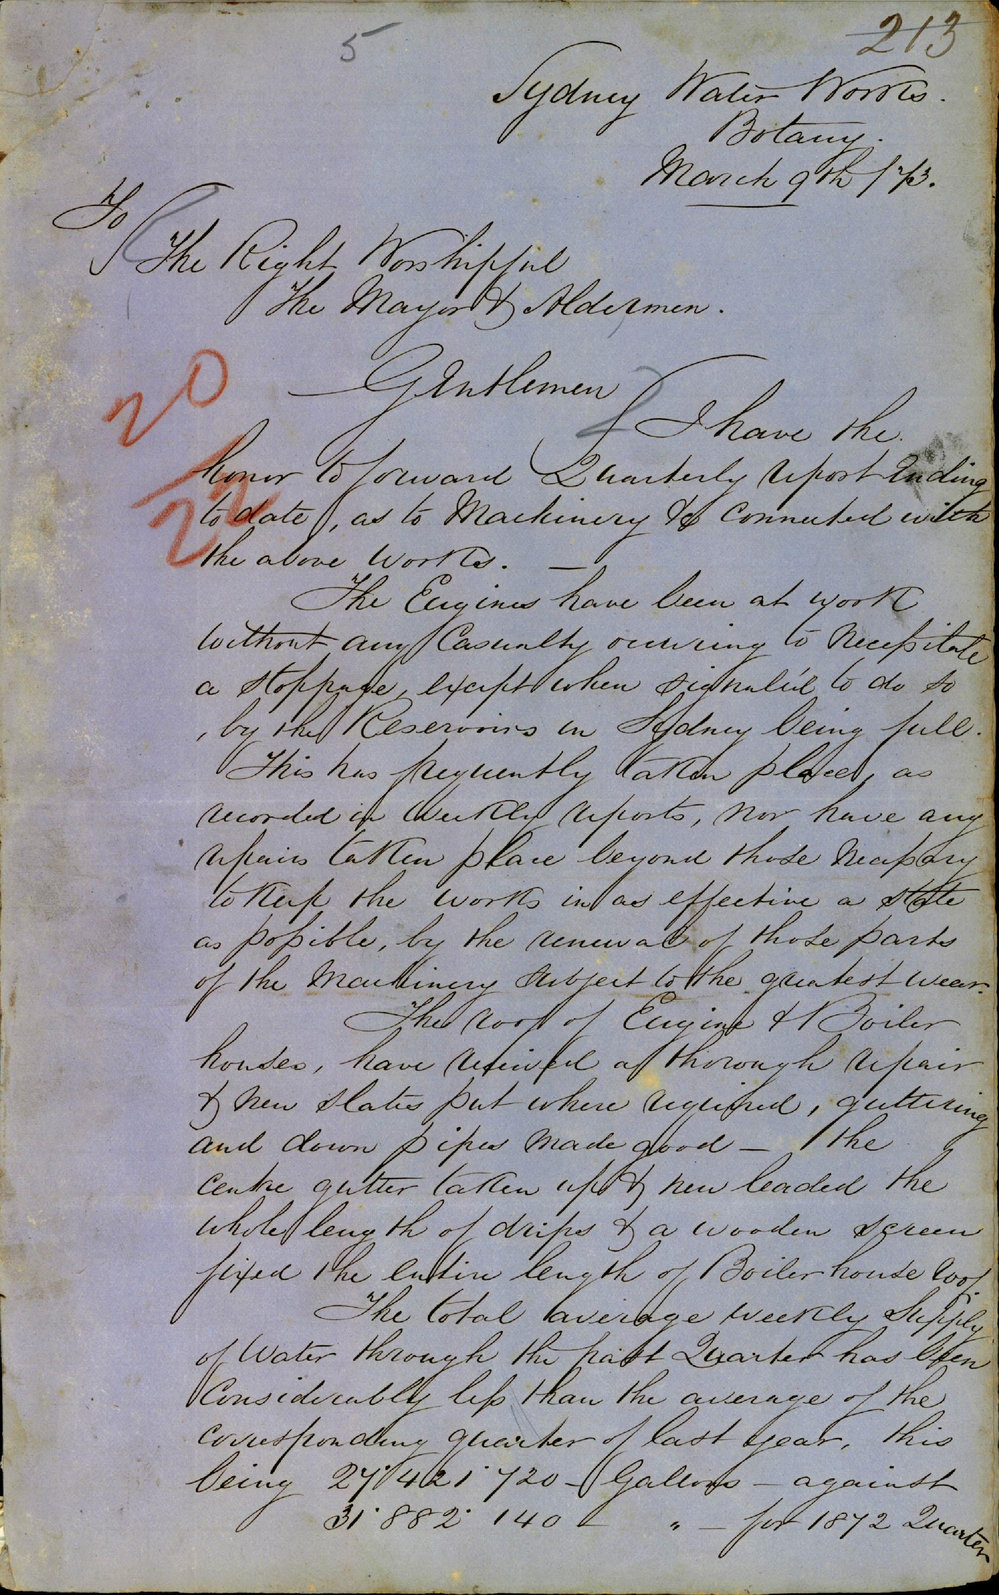 5
213
Sydney Water Works.
Botany.
March 9th /73.
To
The Right Worshipful
The Mayor & Aldermen.
Gentlemen
I have the
20
honor to forward Quarterly report Ending
22
to date, as to Machinery &c connected with
the above works. —
The Engines have been at work
without any Casualty occuring to necessitate
a stoppage, except when signaled to do so
, by the Reservoirs in Sydney being full.
This has frequently taken place, as
recorded in weekly reports, nor have any
repairs taken place beyond those necessary
to keep the works in as effective a state
as possible, by the renewal of those parts
of the Machinery subject to the greatest wear.
The roof of Engine & Boiler
houses, have received a thorough repair
& new slates put where required, guttering
and down pipes made good — the
centre gutter taken up & new leaded the
whole length of drips & a wooden screen
fixed the entire length of Boiler house roof
The total average weekly Supply
of Water through the past Quarter has been
Considerably less than the average of the
corresponding quarter of last year, this
being 27.421.720 — Gallons — against
31.882.140 — " — for 1872 Quarter